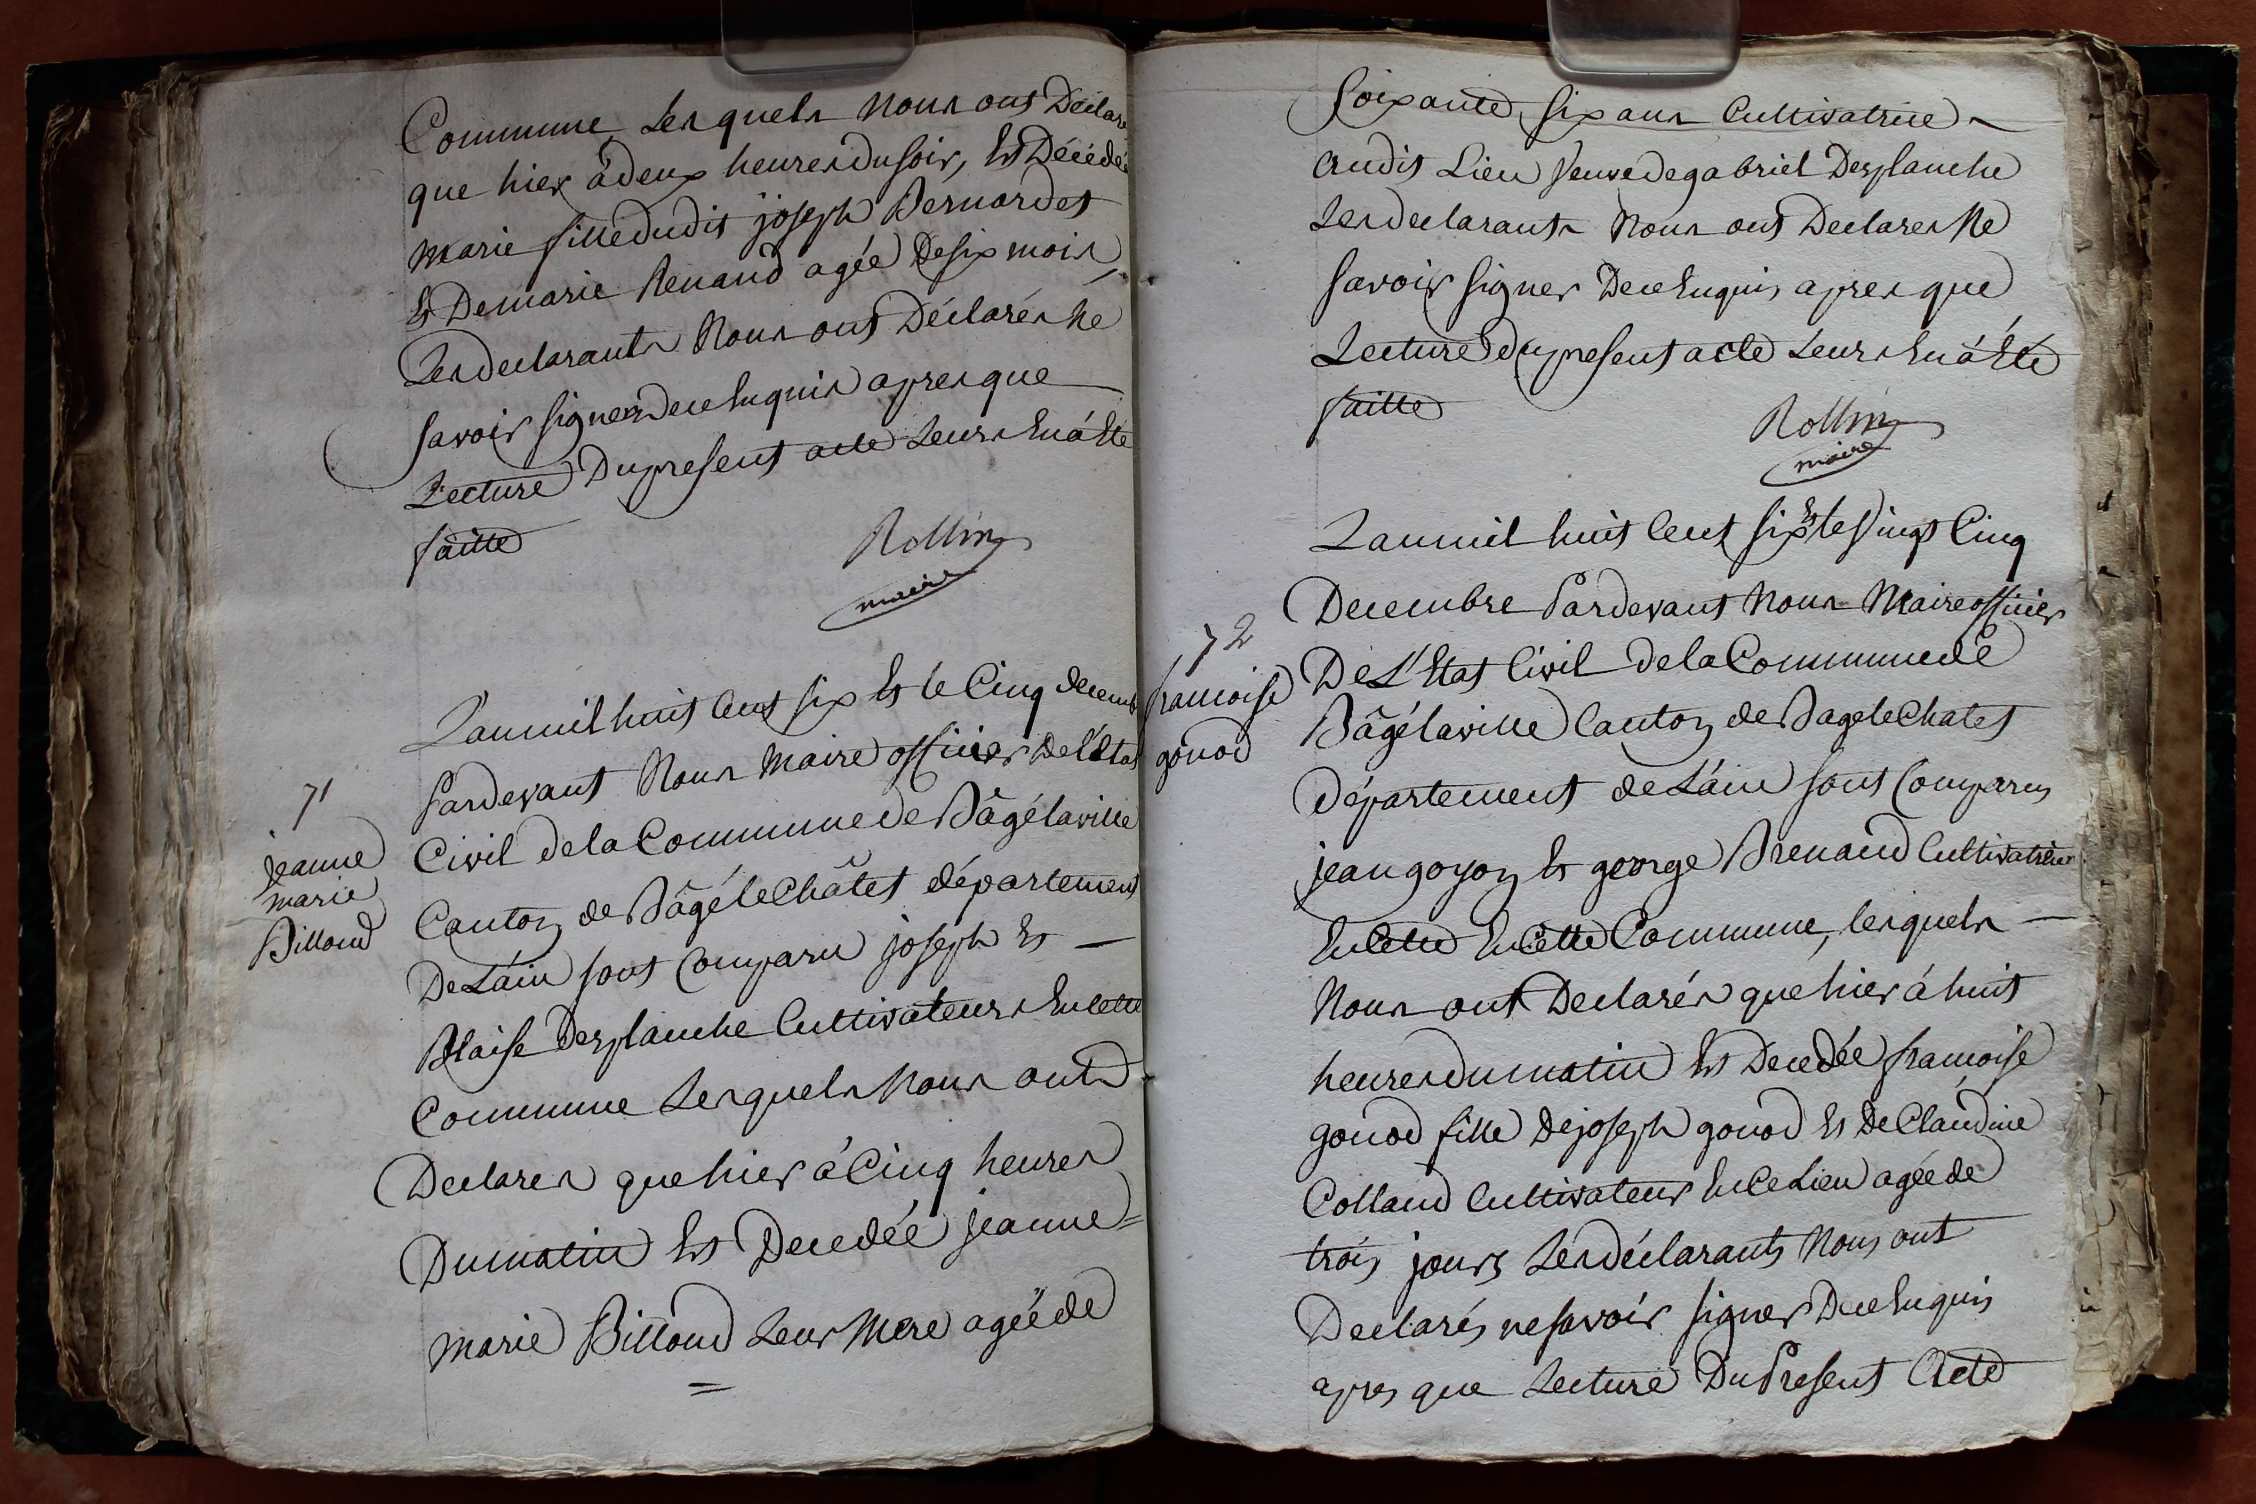 Commune Lesquels Nous ont Déclaré
que hier à deux heures du soir, Est Décédé
marie fille dudit joseph Bernardet
Et De marie Renaud agée De six mois,
Les declarants Nous ont Déclarés Ne
savoir signer de ce Enquis apres que
Lecture Du present acte Leurs En à Eté
faitte
Rollin
maire
L'an mil huit Cent six Et le Cinq decemb
Pardevant Nous Maire officier De l'Etat
71
jeanne
marie
Billoud
Civil de la Commune de Bâgé la ville
Canton de Bâgé le Châtet département
De L'ain sont Comparu joseph Et
Blaise Desplanche Cultivateurs En cette
Commune Lesquels Nous ont
Declares que hier à Cinq heures
Du matin Est Decedée jeanne =
marie Billoud Leur Mere agée de
=
Soixante six ans Cultivatrice
audit Lieu Veuve de gabriel Desplanche
Les declarants Nous ont Declares Ne
savoir signer De ce Enquis apres que
Lecture du present acte Leurs En à Eté
faitte
Rollin
maire
L'an mil huit Cent six Et le Vingt Cinq
Decembre Pardevant Nous Maire officier
72
francoise
gonod
De L'Etat Civil de la Commune de
Bâgé la ville Canton de Bagé le Chatet
département de L'ain sont Comparus
jean goyon Et george Brenaud Cultivateurs
En Cette En Cette Commune, lesquels
Nous ont Declarés que hier à huit
heures du matin Est Decedée francoise
gonod fille De joseph gonod Et De Claudine
Colland Cultivateur En Ce Lieu agée de
trois jours Les déclarants Nous ont
Declarés ne savoir signer De ce Enquis
apres que Lecture Du Present Acte